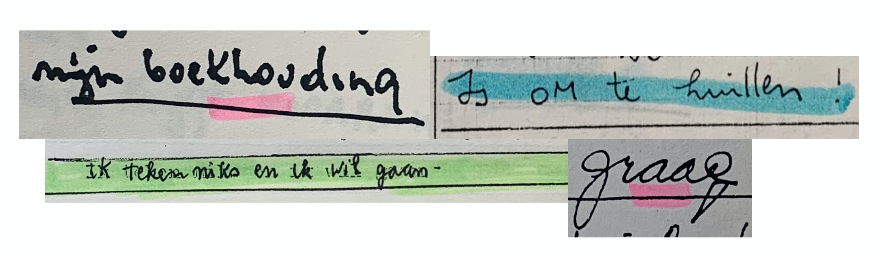 mijn boekhouding
Is om te huillen !
ik teken niks en ik wil gaan-
graag